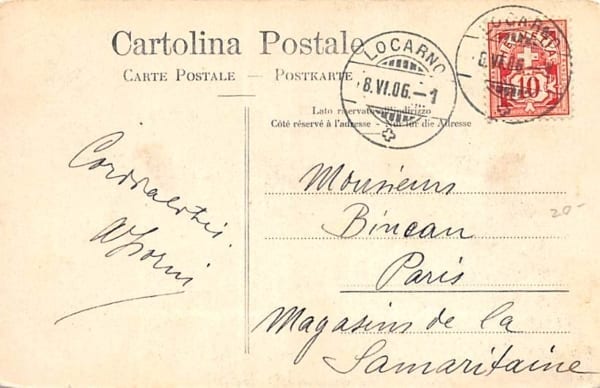 Cartolina Postale
CARTE POSTALE — POSTKARTE
LOCARNO
8.VI.06.-1
LOCARNO
10
Lato riservato all'indirizzo
Côté réservé à l'adresse - Nur für die Adresse
Monsieur
Bincan
Paris
Magasins de la
Samaritaine
20-